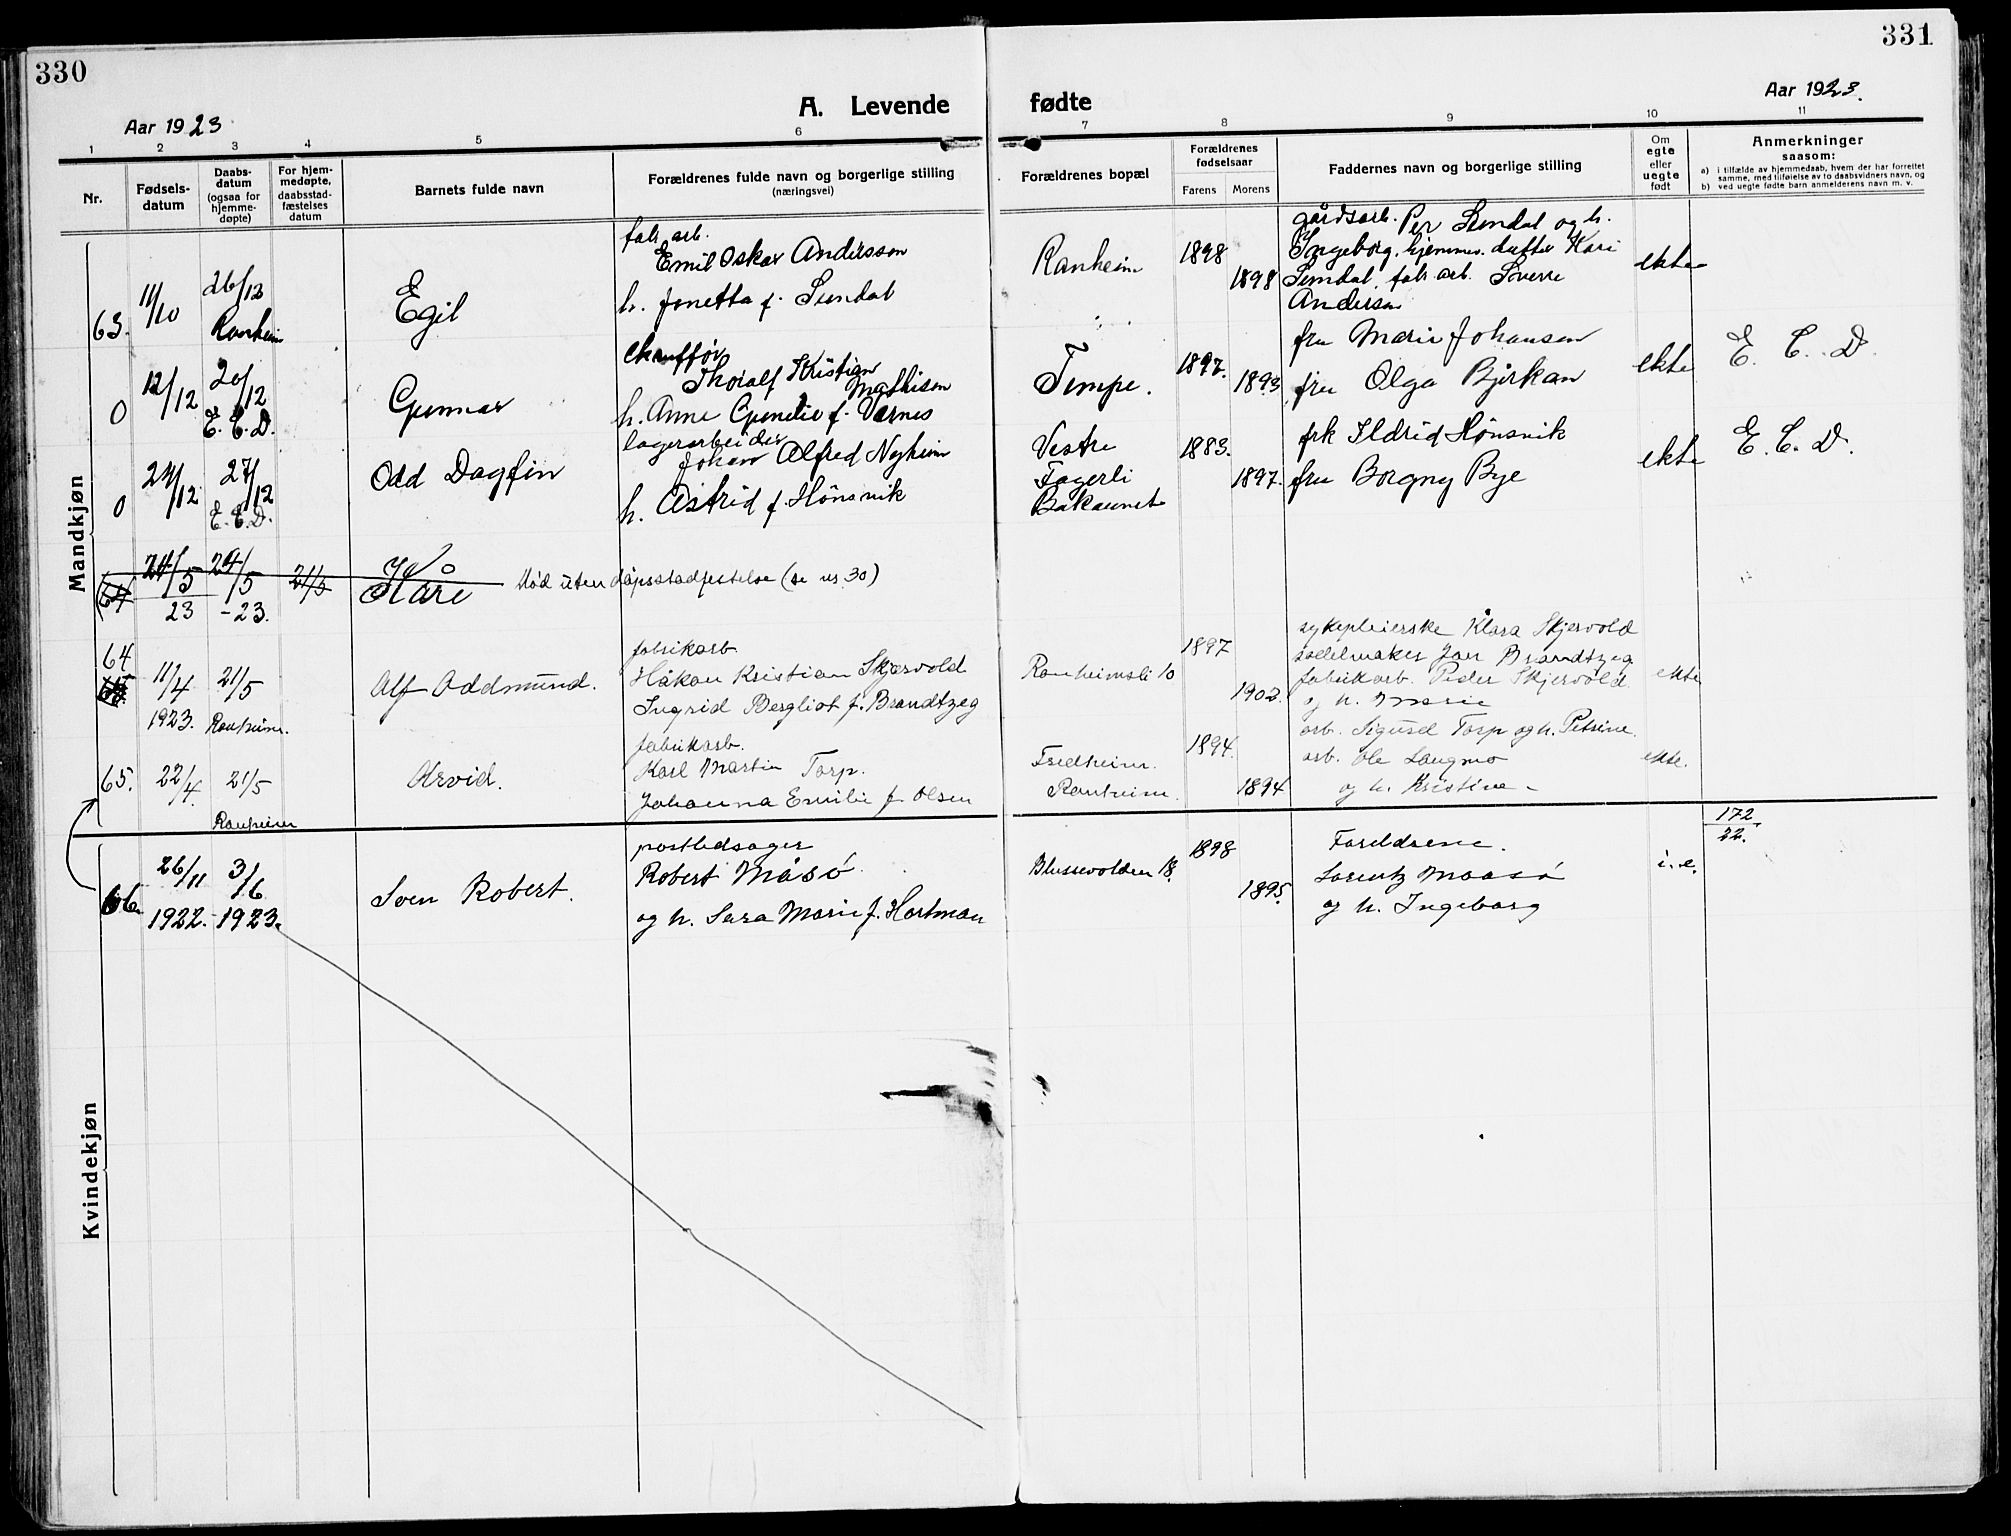 330
331
A. Levende fødte
Aar 1923
Aar 1923.
1 2 3 4 5 6 7 8 9 10 11
Nr.
Fødsels-
datum
Daabs-
datum
(ogsaa for
hjemme-
døpte)
For hjem-
medøpte,
daabsstad-
fæstelses
datum
Barnets fulde navn
Forældrenes fulde navn og borgerlige stilling
(næringsvei)
Forældrenes bopæl
Forældrenes
fødselsaar
Farens Morens
Faddernes navn og borgerlige stilling
Om
egte
eller
uegte
født
Anmerkninger
saasom:
a) i tilfælde av hjemmedaab, hvem der har forrettet
samme, med tilføielse av to daabsvidners navn, og
b) ved uegte fødte barn anmelderens navn m. v.
Mandkjøn
63. 11/10 26/12 Ranheim
Egil
fabr. arb.
Emil Oskar Anderssen
h. Jonetta f. Sundal
Ranheim
1898
1898
gårdsarb. Per Sundal og h.
Ingeborg, hjemmev. datter Kari
Sundal, fabr. arb. Sverre
Andersen
ekte
0 12/12 20/12 E. C. D.
Gunnar
chauffør
Thoralf Kristian
Mathisen
h. Anne Gunelie f. Værnes
Tempe.
1897.
1893
fru Marie Johansen
fru Olga Bjørkan
ekte
E. C. D.
0 24/12 27/12 E. C. D.
Odd Dagfin
lagerarbeider
Johan Alfred Nyheim
h. Astrid f. Hönsvik
Vestre
Fagerli
Bakaunet
1883.
1897.
frk Ildrid Hönsvik
fru Borgny Bye
ekte
E. C. D.
64 24/5 23 24/5 -23. 21/5
Kåre
død uten dåpsstadfestelse (se nr 30)
64
11/4 1923. 21/5 Ranheim.
Alf Oddmund.
fabrikarb
Håkon Kristian Skjervold
Ingrid Bergliot f. Brandtzeg
Ranheimsli 10
1897
1902.
sykepleierske Klara Skjervold
sadelmaker Jon Brandtzeg
fabrikarb. Peder Skjervold
og h. Marie
ekte
65. 22/4. 21/5 Ranheim
Arvid.
fabrikarb.
Karl Martin Torp.
Johanna Emilie f. Olsen
Fredheim.
Ranheim.
1894.
1894
arb. Sigurd Torp og h. Petrine.
arb. Ole Langmo
og h. Kristine -
ekte.
172
22.
66. 26/11 1922. 3/6 1923.
Sven Robert.
postledsager
Robert Måsö
og h. Sara Marie f. Hartman
Blussevolden 18.
1898
1895.
Foreldrene.
Lorentz Maasö
og h. Ingeborg
i. e.
Kvindekjøn